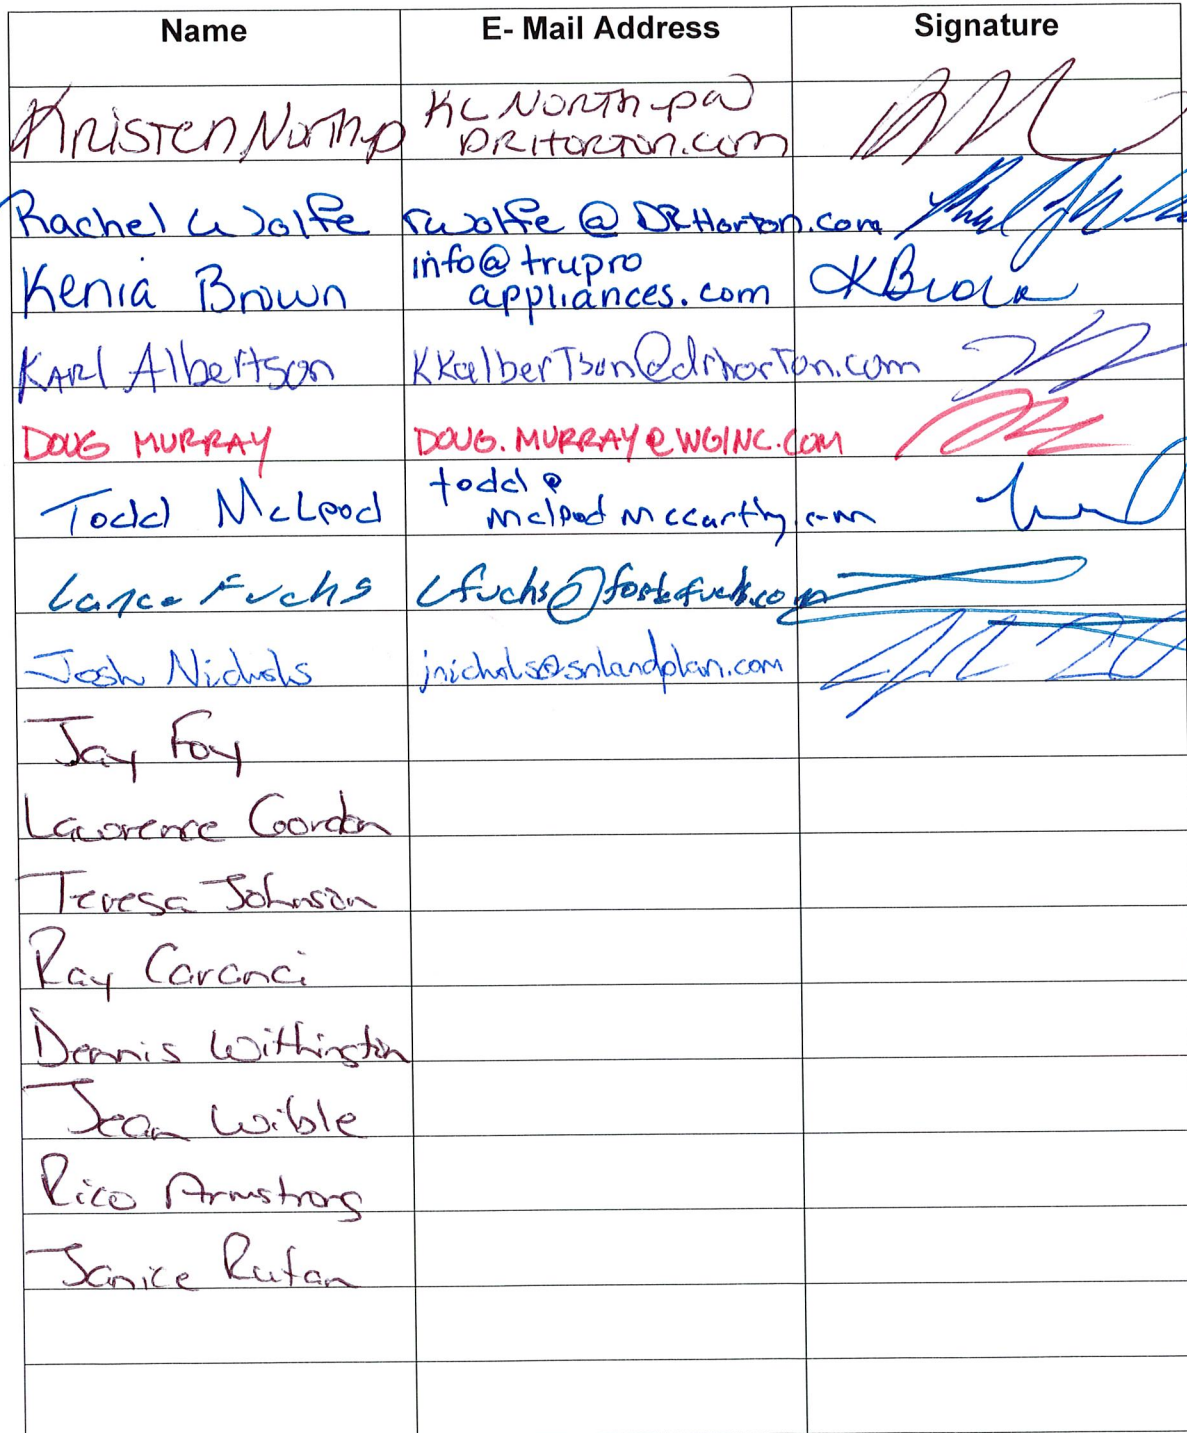 Name E- Mail Address Signature
Kristen Northup KCNorthup@
DRHorton.com
Rachel Wolfe rwolfe@DRHorton.com
Kenia Brown info@trupro
appliances.com KBrown
Karl Albertson KKalbertson@drhorton.com
DOUG MURRAY DOUG.MURRAY@WGINC.COM
Todd McLeod todd@
mcleodmccarthy.com
Lance Fuchs
Josh Nichols jnichols@snlandplan.com
Jay Foy
Lawrence Gordon
Teresa Johnson
Ray Caranci
Dennis Withington
Jean Wible
Rico Armstrong
Janice Rutan